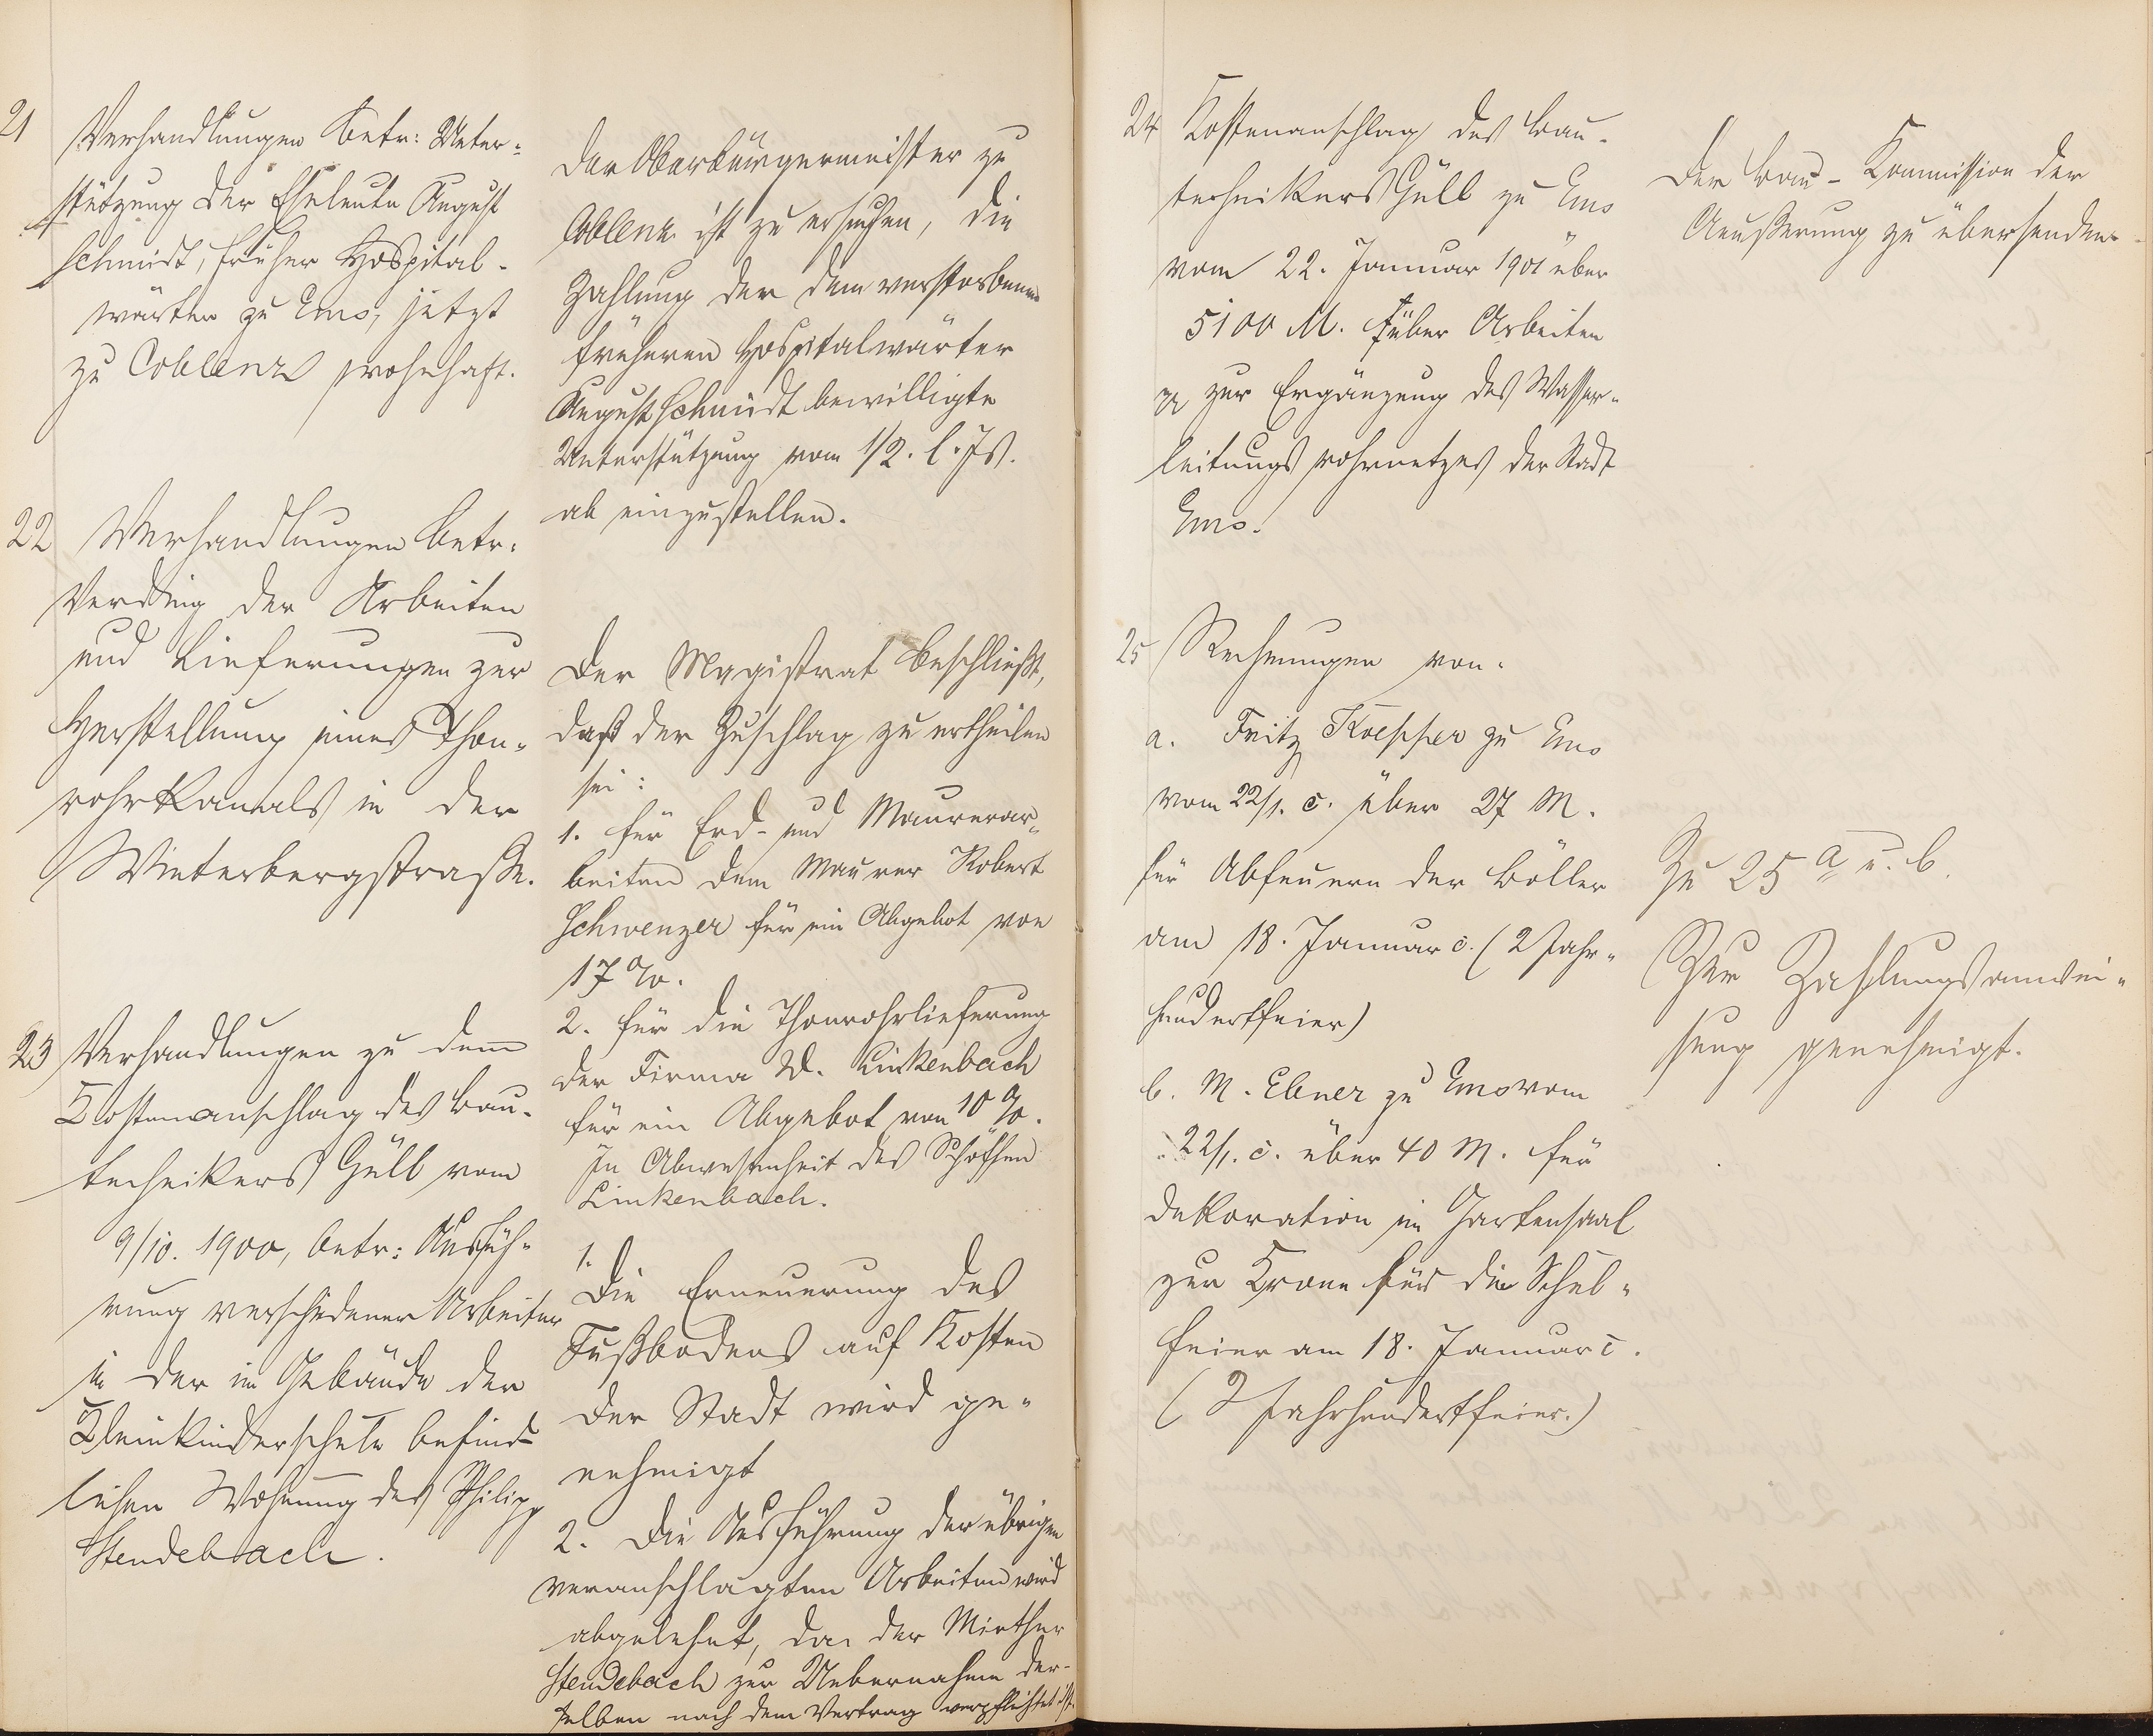 21
Verhandlungen betr: Unter-
stützung der Eheleute August
Schmidt, früher Hospital-
wärter zu Ems, jetzt
zu Coblenz wohnhaft.
Der Oberbürgermeister zu
Coblenz ist zu ersuchen, die
Zahlung der dem verstorbenen
früheren Hospitalwärter
August Schmidt bewilligte
Unterstützung vom 1/2. l. Js.
ab einzustellen.
22 Verhandlungen betr.
Verding der Arbeiten
und Lieferungen zur
Herstellung eines Thon-
rohrkanals in der
Winterbergstraße.
Der Magistrat beschließt,
daß der Zuschlag zu ertheilen
sei:
1. für Erd- und Maurerar-
beiten dem Maurer Robert
Schwenzer für ein Abgebot von
17%.
2. für die Thonrohrlieferung
der Firma W. Linkenbach
für ein Abgebot von 10%.
In Abwesenheit des Schöffen
Linkenbach.
23 Verhandlungen zu dem
Kostenanschlag des Bau-
technikers Güll vom
9/10. 1900, betr: Ausfüh-
rung verschiedener Arbeiten
in der im Gebäude der
Kleinkinderschule befind-
lichen Wohnung des Philipp
Stendebach.
1.
Die Erneuerung des
Fußbodens auf Kosten
der Stadt wird ge-
nehmigt
2. Die Ausführung der übrigen
veranschlagten Arbeiten wird
abgelehnt, da der Miether
Stendebach zur Uebernahme der-
selben nach dem Vertrag verpflichtet ist.
24 Kostenanschlag des Bau-
technikers Güll zu Ems
vom 22. Januar 1901 über
5100 M. über Arbeiten
zur Ergänzung des Wasser-
leitungsrohrnetzes der Stadt
Ems.
Der Bau-Kommission der
Aeußerung zu übersenden.
25 Rechnungen von.
a. Fritz Koepper zu Ems
vom 22/1. c. über 27 M.
für Abfeuern der Böller
am 18. Januar c. (2 Jahr-
hundertfeier)
b. M. Ebner zu Ems vom
22/1. c. über 40 M. für
Dekoration im Gartensaal
zur Krone für die Schul-
feier am 18. Januar c.
(2 Jahrhundertfeier.)
Zu 25 a u. b.
Zur Zahlungsanwei-
sung genehmigt.